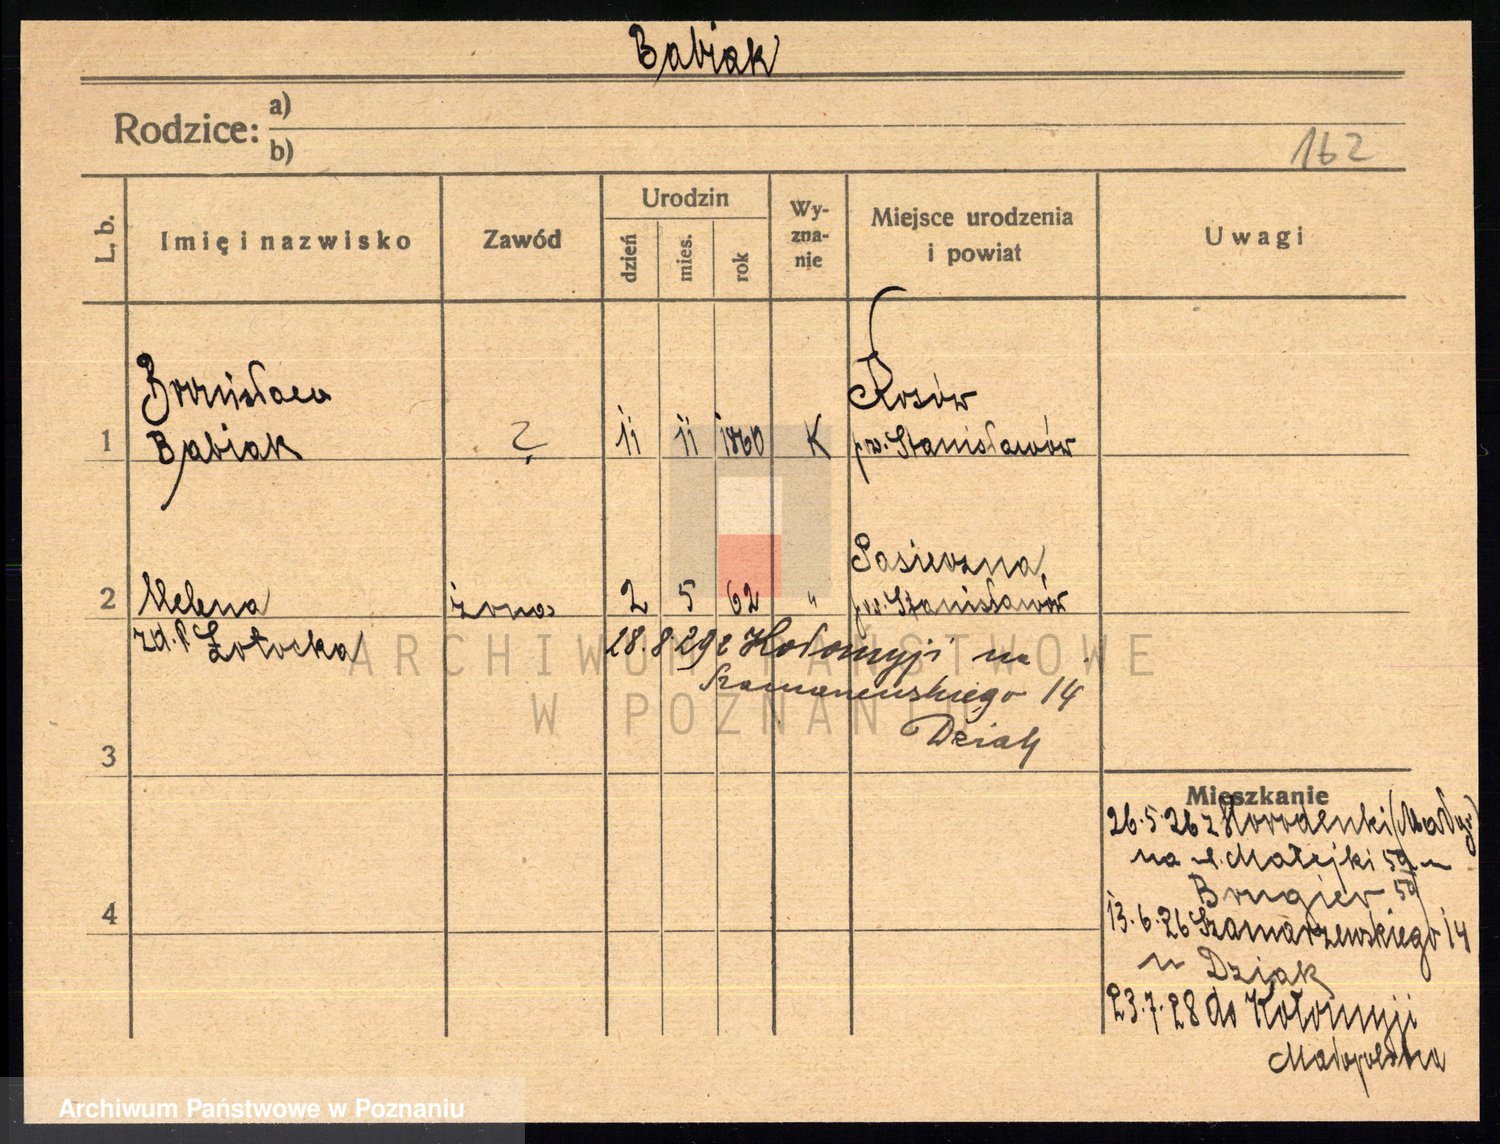 Babiak
Rodzice: a)
b)
162
L. b.
Imię i nazwisko
Zawód
Urodzin
dzień
mies.
rok
Wy-
zna-
nie
Miejsce urodzenia
i powiat
Uwagi
Bronisław
1 Babiak ? 11 11 1860 K
Kosów
pw. Stanisławów
2 Helena żona 2 5 62 "
Pasieczna,
pw. Stanisławów
zd. Złotocka
28.8.29 z Kołomyji na
Szamarzewskiego 14
Dziak
3
4
Mieszkanie
26.5.26 z Horodenki (Małop)
na Matejki 59 u
Brugier
13.6.26 Szamarzewskiego 14
u Dziak
23.7.28 do Kołomyji
Małopolska
ARCHIWUM PAŃSTWOWE
W POZNANIU
Archiwum Państwowe w Poznaniu